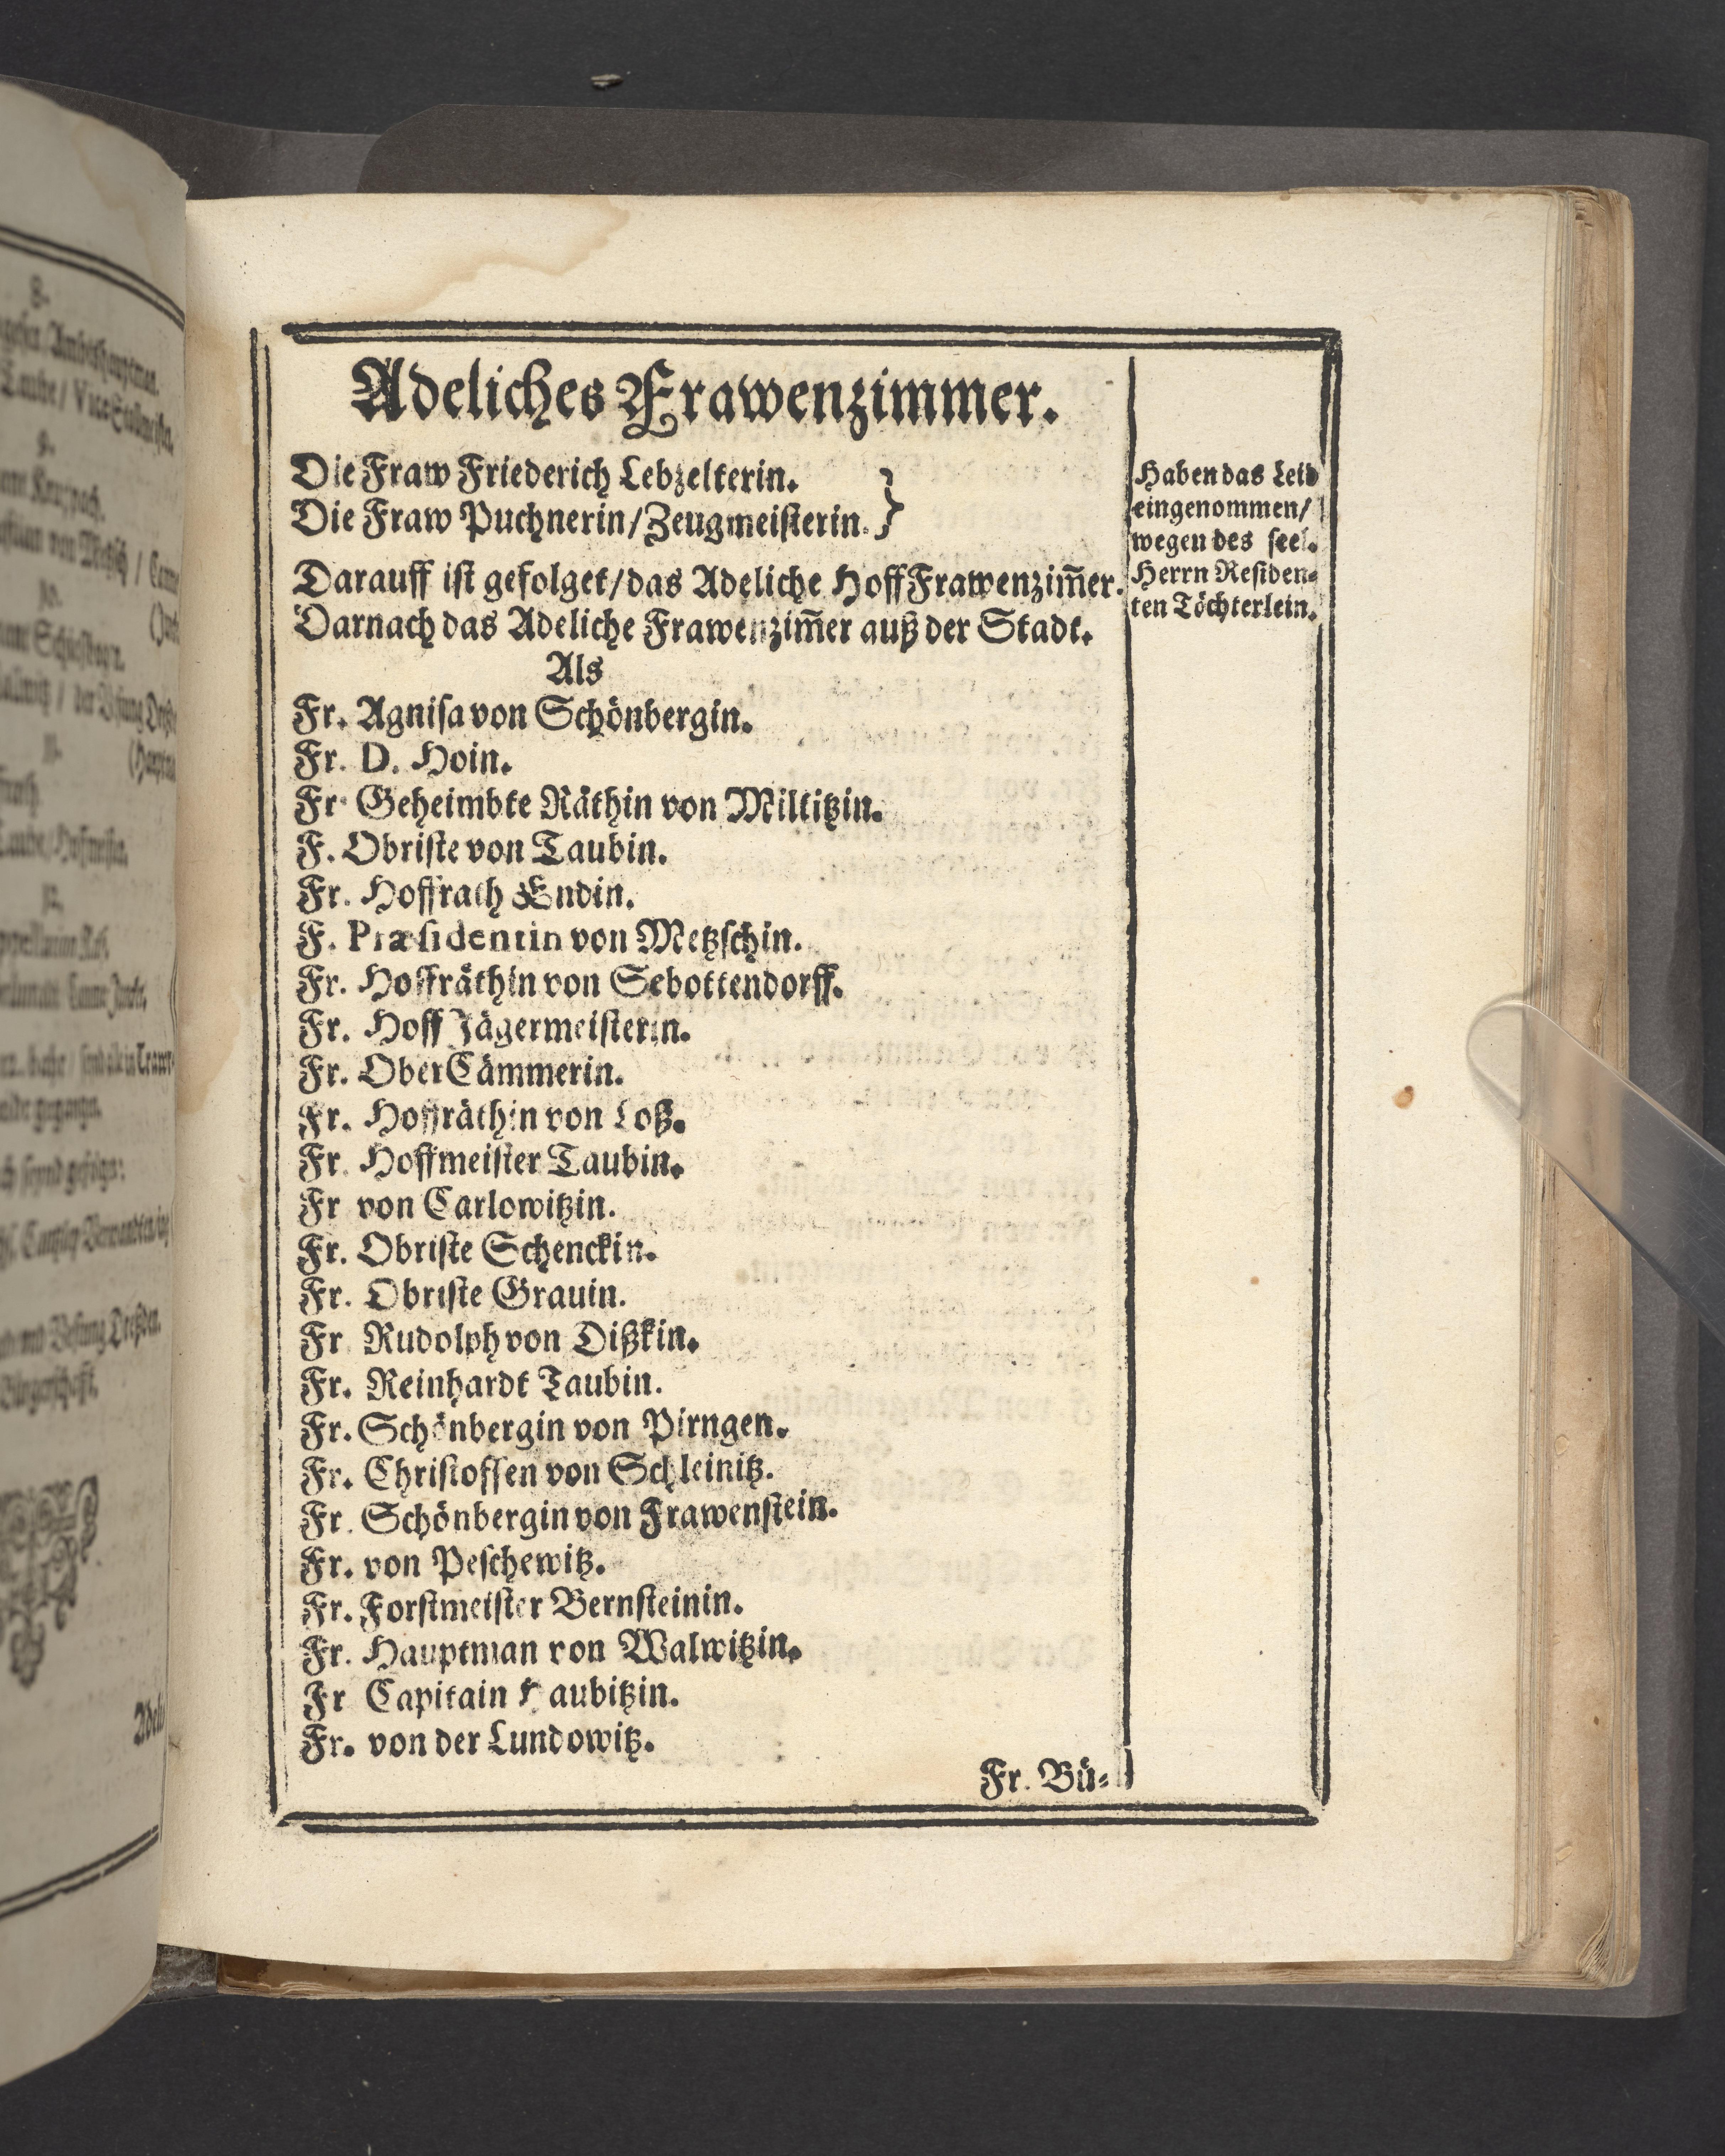 Adeliches Frawenzimmer.
Die Fraw Friederich Lebzelterin.
Die Fraw Puchnerin/Zeugmeisterin.
Darauff ist gefolget/das Adeliche HoffFrawenzim̃er.
Darnach das Adeliche Frawenzim̃er auß der Stadt.
Als
Fr. Agnisa von Schönbergin.
Fr. D. Hoin.
Fr Geheimbte Räthin von Miltitzin.
F. Obriste von Taubin.
Fr. Hoffrath Endin.
F. Præsidentin von Metzschin.
Fr. Hoffräthin von Sebottendorff.
Fr. Hoff Jägermeisterin.
Fr. OberCämmerin.
Fr. Hoffräthin von Loß.
Fr. Hoffmeister Taubin.
Fr von Carlowitzin.
Fr. Obriste Schenckin.
Fr. Obriste Grauin.
Fr. Rudolph von Dißkin.
Fr. Reinhardt Taubin.
Fr. Schönbergin von Pirngen.
Fr. Christoffen von Schleinitz.
Fr. Schönbergin von Frawenstein.
Fr. von Peschewitz.
Fr. Forstmeister Bernsteinin.
Fr. Hauptman von Walwitzin.
Fr Capitain Haubitzin.
Fr. von der Lundowitz.
Fr. Bü-
Haben das Leid
eingenommen/
wegen des seel.
Herrn Residen-
ten Töchterlein.